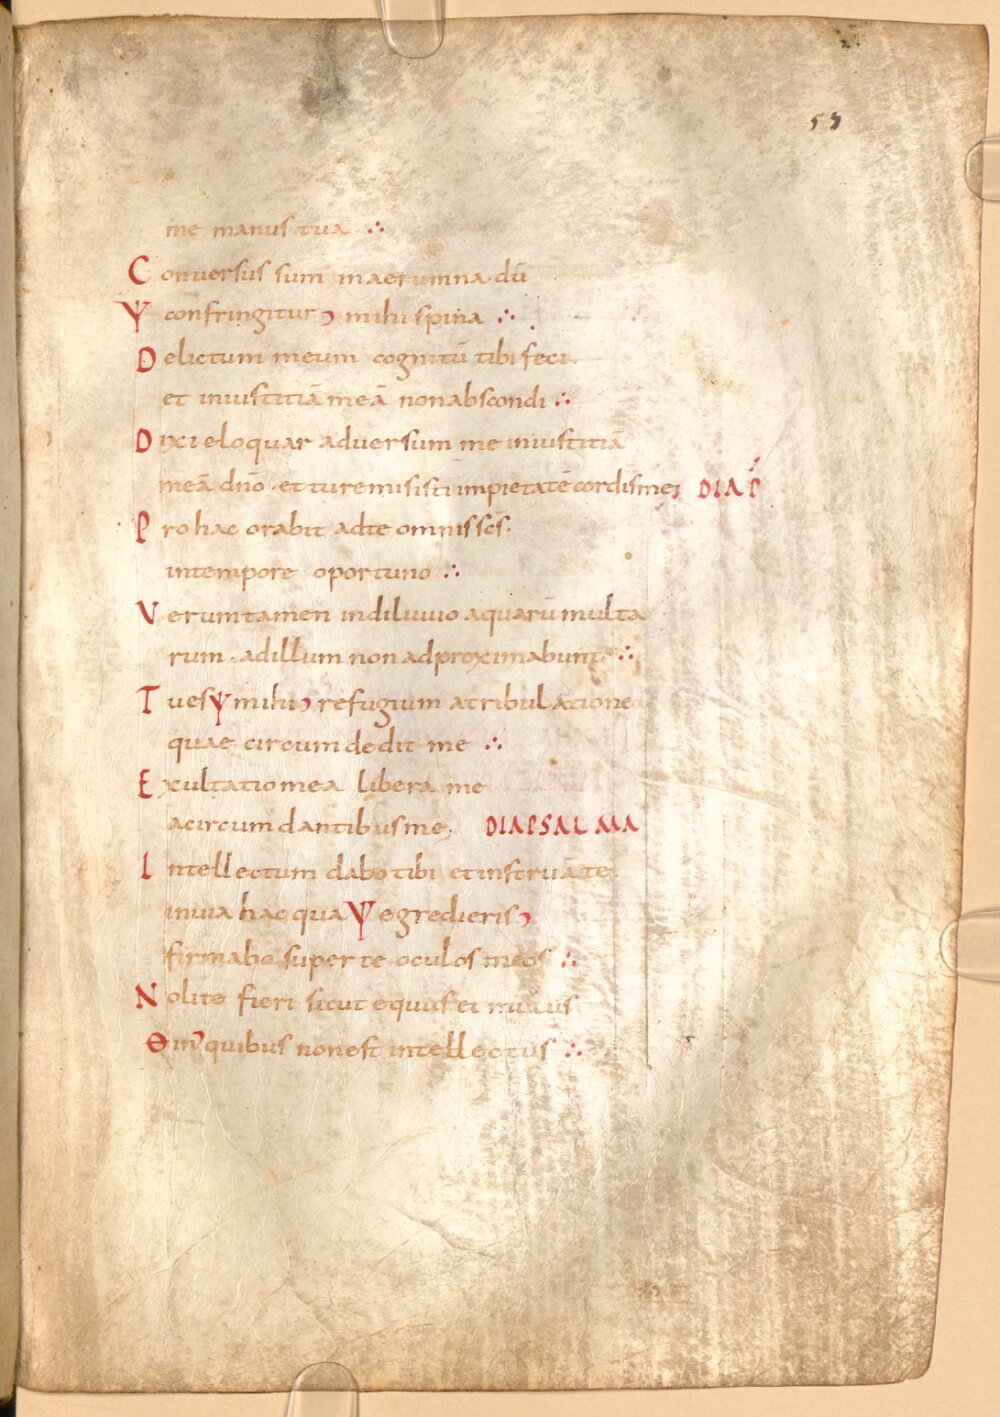 53
me manus tua ∴
Conversus sum in aerumna dū
Ψ confringitur mihi spina ∴
Delictum meum cognitū tibi feci.
et iniustitiā meā non abscondi ∴
Dixi eloquar adversum me iniustitiā
meā dnō · et tu remisisti impietatē cordis mei DIAP
Pro hac orabit ad te omnis scs̄·
in tempore oportuno ∴
Verumtamen in diluvio aquarū multa
rum · ad illum non adproximabunt ∴
Tu es Ψ mihi refugium a tribulatione
quae circumdedit me ∴
Exultatio mea libera me
a circumdantibus me; DIAPSALMA
Intellectum dabo tibi et instruā te
in via hac qua Ψ egredieris
firmabo super te oculos meos ∴
Nolite fieri sicut equus et mulus
Θ in quibus non est intellectus ∴